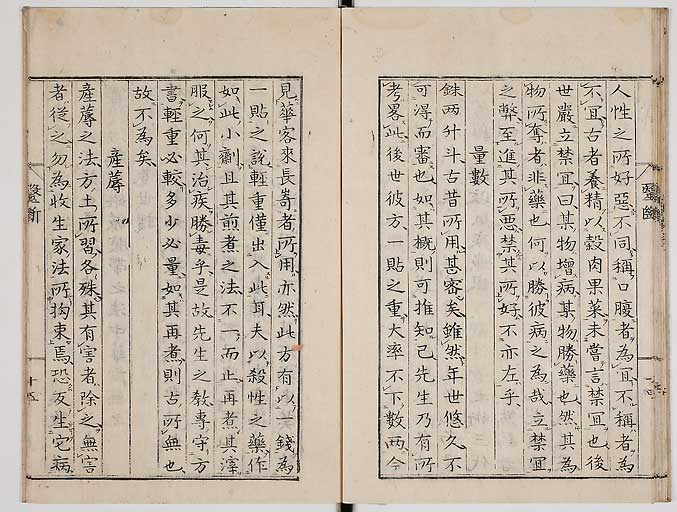 人性之所好惡不同稱口腹者為宜不稱者為
不宜古者養精以穀肉果菜未嘗言禁宜也後
世嚴立禁宜曰某物增病某物勝藥也然其為
物所奪者非藥也何以勝彼病之為哉立禁宜
之弊至進其所惡禁其所好不亦左乎
量數
銖兩升斗古昔所用甚審矣雖然年世悠久不
可得而審也如其概則可推知已先生乃有所
考畧此後世彼方一貼之重大率不下數兩今
見華客來長崎者所用亦然此方有以錢為
一貼之說輕重僅出入此耳夫以殺性之藥作
如此小劑且其煎煮之法不一而止再煮其滓
服之何其治疾勝毒乎是故先生之教專守方
書輕重必較多少必量如其再煮則古所無也
故不為矣
產蓐
產蓐之法方土所習各殊其有害者除之無害
者從之勿為收生家法所拘束焉恐反生它病
醫斷
十五